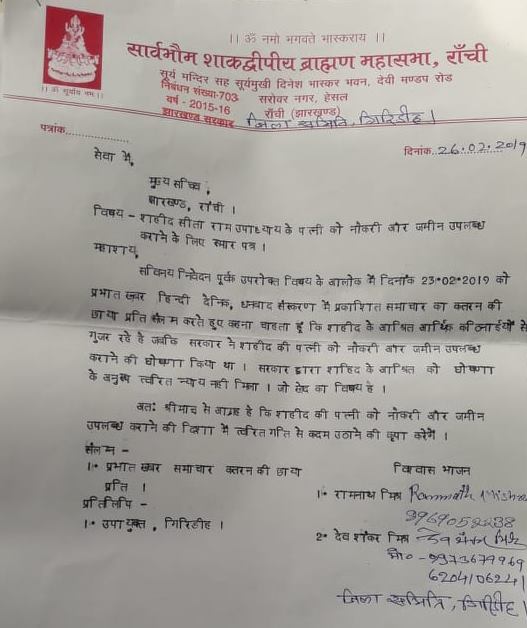 ।। ॐ नमो भगवते भास्कराय ।।
सार्वभौम शाकद्वीपीय ब्राह्मण महासभा, राँची
सूर्य मन्दिर सह सूर्यमुखी दिनेश भास्कर भवन, देवी मण्डप रोड
निबंधन संख्या-703 सरोवर नगर, हेसल
वर्ष - 2015-16 राँची (झारखण्ड)
झारखण्ड सरकार जिला समिति, गिरिडीह।
।। ॐ सूर्याय नमः ।।
पत्रांक..................
दिनांक..26.02.2019
सेवा में,
मुख्य सचिव,
झारखण्ड, राँची ।
विषय - शहीद सीता राम उपाध्याय के पत्नी को नौकरी और जमीन उपलब्ध
कराने के लिए स्मार पत्र ।
महाशय,
सविनय निवेदन पूर्वक उपरोक्त विषय के आलोक में दिनांक 23.02.2019 को
प्रभात खबर हिन्दी दैनिक, धनवाद संस्करण में प्रकाशित समाचार का कतरन की
छाया प्रति संलग्न करते हुए कहना चाहता हूँ कि शहीद के आश्रित आर्थिक कठिनाईयों से
गुजर रहे है जबकि सरकार ने शहीद की पत्नी को नौकरी और जमीन उपलब्ध
कराने की घोषणा किया था । सरकार द्वारा शहिद के आश्रित को घोषणा
के अनुरूप त्वरित न्याय नहीं मिला । जो खेद का विषय है ।
अतः श्रीमान से आग्रह है कि शहीद की पत्नी को नौकरी और जमीन
उपलब्ध कराने की दिशा में त्वरित गति से कदम उठाने की कृपा करेंगें ।
संलग्न -
1. प्रभात खबर समाचार कतरन की छाया
प्रति ।
प्रतिलिपि -
1. उपायुक्त, गिरिडीह ।
विश्वास भाजन
1. रामनाथ मिश्र Ramnath Mishra
9969052238
2. देव शंकर मिश्र देव शंकर मिश्र
मो० - 9973679969
6204106241
जिला समिति, गिरिडीह।